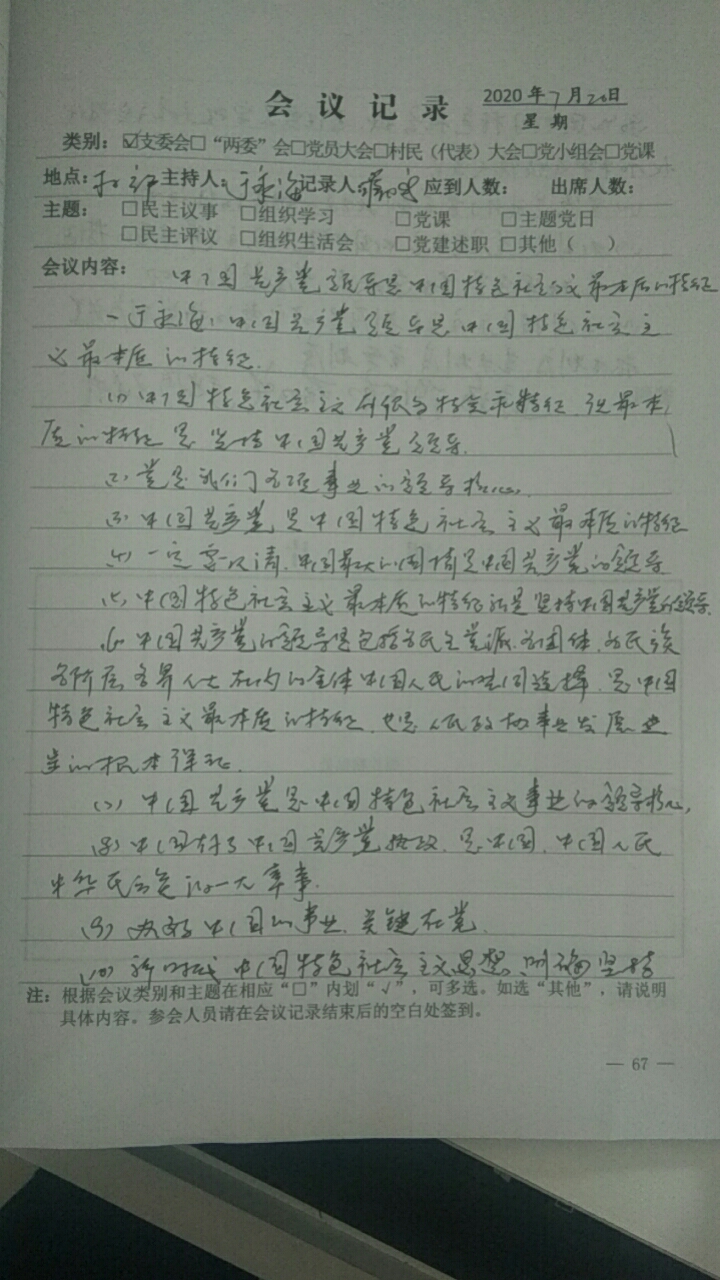 会议记录 2020年7月20日
星期
类别：☑支委会□“两委”会□党员大会□村民（代表）大会□党小组会□党课
地点：村部 主持人：于永海 记录人： 应到人数： 出席人数：
主题： □民主议事 □组织学习 □党课 □主题党日
□民主评议 □组织生活会 □党建述职 □其他（ ）
会议内容： 中国共产党领导是中国特色社会主义最本质的特征
一于永海：中国共产党领导是中国特色社会主
义最本质的特征.
(1) 中国特色社会主义有很多特色和特征,但最本
质的特征是坚持中国共产党领导.
(2) 党是我们各项事业的领导核心.
(3) 中国共产党是中国特色社会主义最本质的特征
(4) 一定要认清,中国最大的国情是中国共产党的领导
(5) 中国特色社会主义最本质的特征就是坚持中国共产党的领导.
(6) 中国共产党的领导是包括各民主党派.各团体.各民族
各阶层各界人士在内的全体中国人民的共同选择.是中国
特色社会主义最本质的特征,也是人民政协事业发展进
步的根本保证.
(7) 中国共产党是中国特色社会主义事业的领导核心,
(8) 中国有了中国共产党执政.是中国.中国人民
中华民族的一大幸事.
(9) 办好中国的事业,关键在党.
(10) 新时代中国特色社会主义思想,明确坚持
注：根据会议类别和主题在相应“□”内划“√”，可多选。如选“其他”，请说明
具体内容。参会人员请在会议记录结束后的空白处签到。
— 67 —